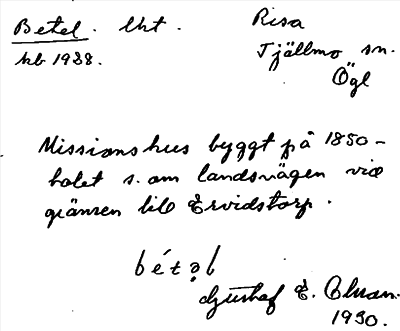 Betel. lht. Risa
hb 1938. Tjällmo sn.
Ögl
Missionshus byggt på 1850-
talet s. om landsvägen vid
gränsen till Ervidstorp.
bétəl
Gustaf E.
1930.